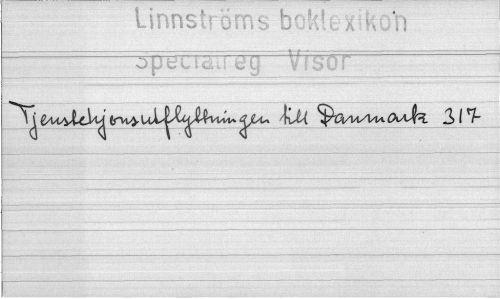 Linnströms boklexikon
Specialreg Visor
Tjenstehjonsutflyttningen till Danmark 317